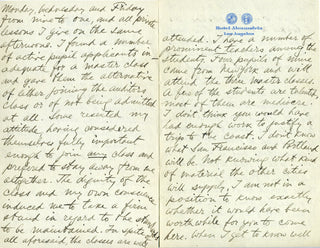 Monday, Wednesday and Friday
from nine to one, and all private
lessons I give on the same
afternoons. I found a number
of active pupil applicants in-
adequate for a master class
and gave them the alternative
of either joining the auditors
class or of not being admitted
at all. Some resented my
attitude, having considered
themselves fully important
enough to join any class and
preferred to stay away from me
altogether. The dignity of the
class and my own conscience
induced me to take a firm
stand in regard to the
to be maintained. In spite of
all aforesaid, the classes are well
Hotel Alexandria
Los Angeles
attended. I have a number of
prominent teachers among the
students. Four pupils of mine
came from New York and will
attend the three master classes.
A few of the students are talented,
most of them are mediocre.
I don't think you would have
had enough work to justify a
trip to the Coast. I don't know
what San Francisco and Portland
will be. Not knowing what kind
of material the other cities
will supply, I am not in a
position to know exactly
whether it would have been
worth while for you to come
here. When I get to know well